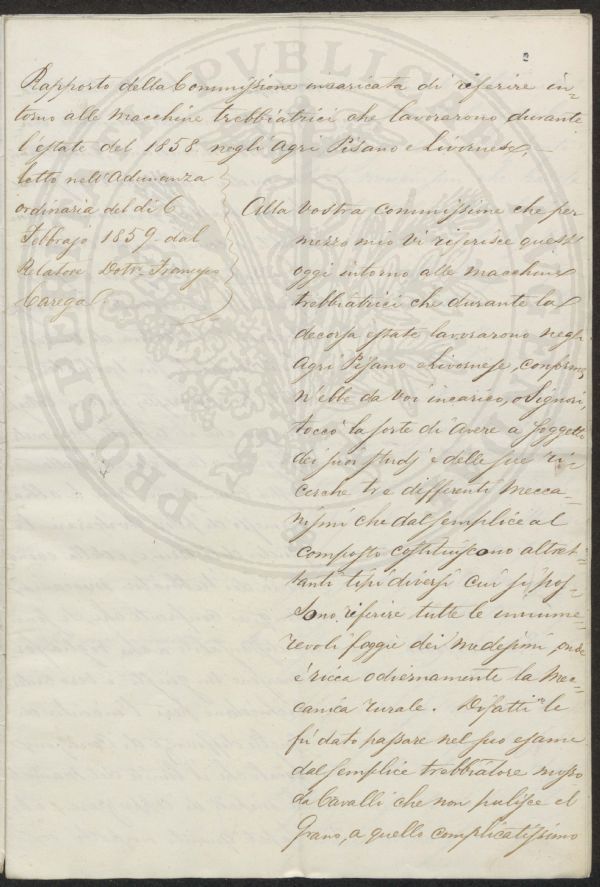 2
Rapporto della Commissione incaricata di riferire in=
torno alle Macchine trebbiatrici che lavorarono durante
l'estate del 1858 negli Agri Pisano e Livornese,—
letto nell'Adunanza
ordinaria del dì 6
Febbrajo 1859 dal
Relatore Dotr. Francesco
Carega
Alla Vostra Commissione che per
mezzo mio Vi riferisce quest'
oggi intorno alle macchine
trebbiatrici che durante la
decorsa estate lavorarono negli
Agri Pisano e Livornese, conforme
n'ebbe da Voi incarico, o Signori,
toccò la sorte di avere a soggetto
dei suoi studj e delle sue ri=
cerche tre differenti Mecca=
nismi che dal semplice al
composto costituiscono altret=
tanti tipi diversi cui si pos=
sono riferire tutte le innume=
revoli foggie dei medesimi, onde
è ricca odiernamente la Mec=
canica rurale. Difatti le
fù dato passare nel suo esame
dal semplice trebbiatore mosso
da Cavalli che non pulisce el
Grano, a quello complicatissimo
PROSPERITATI PVBLICAE AVGENDAE